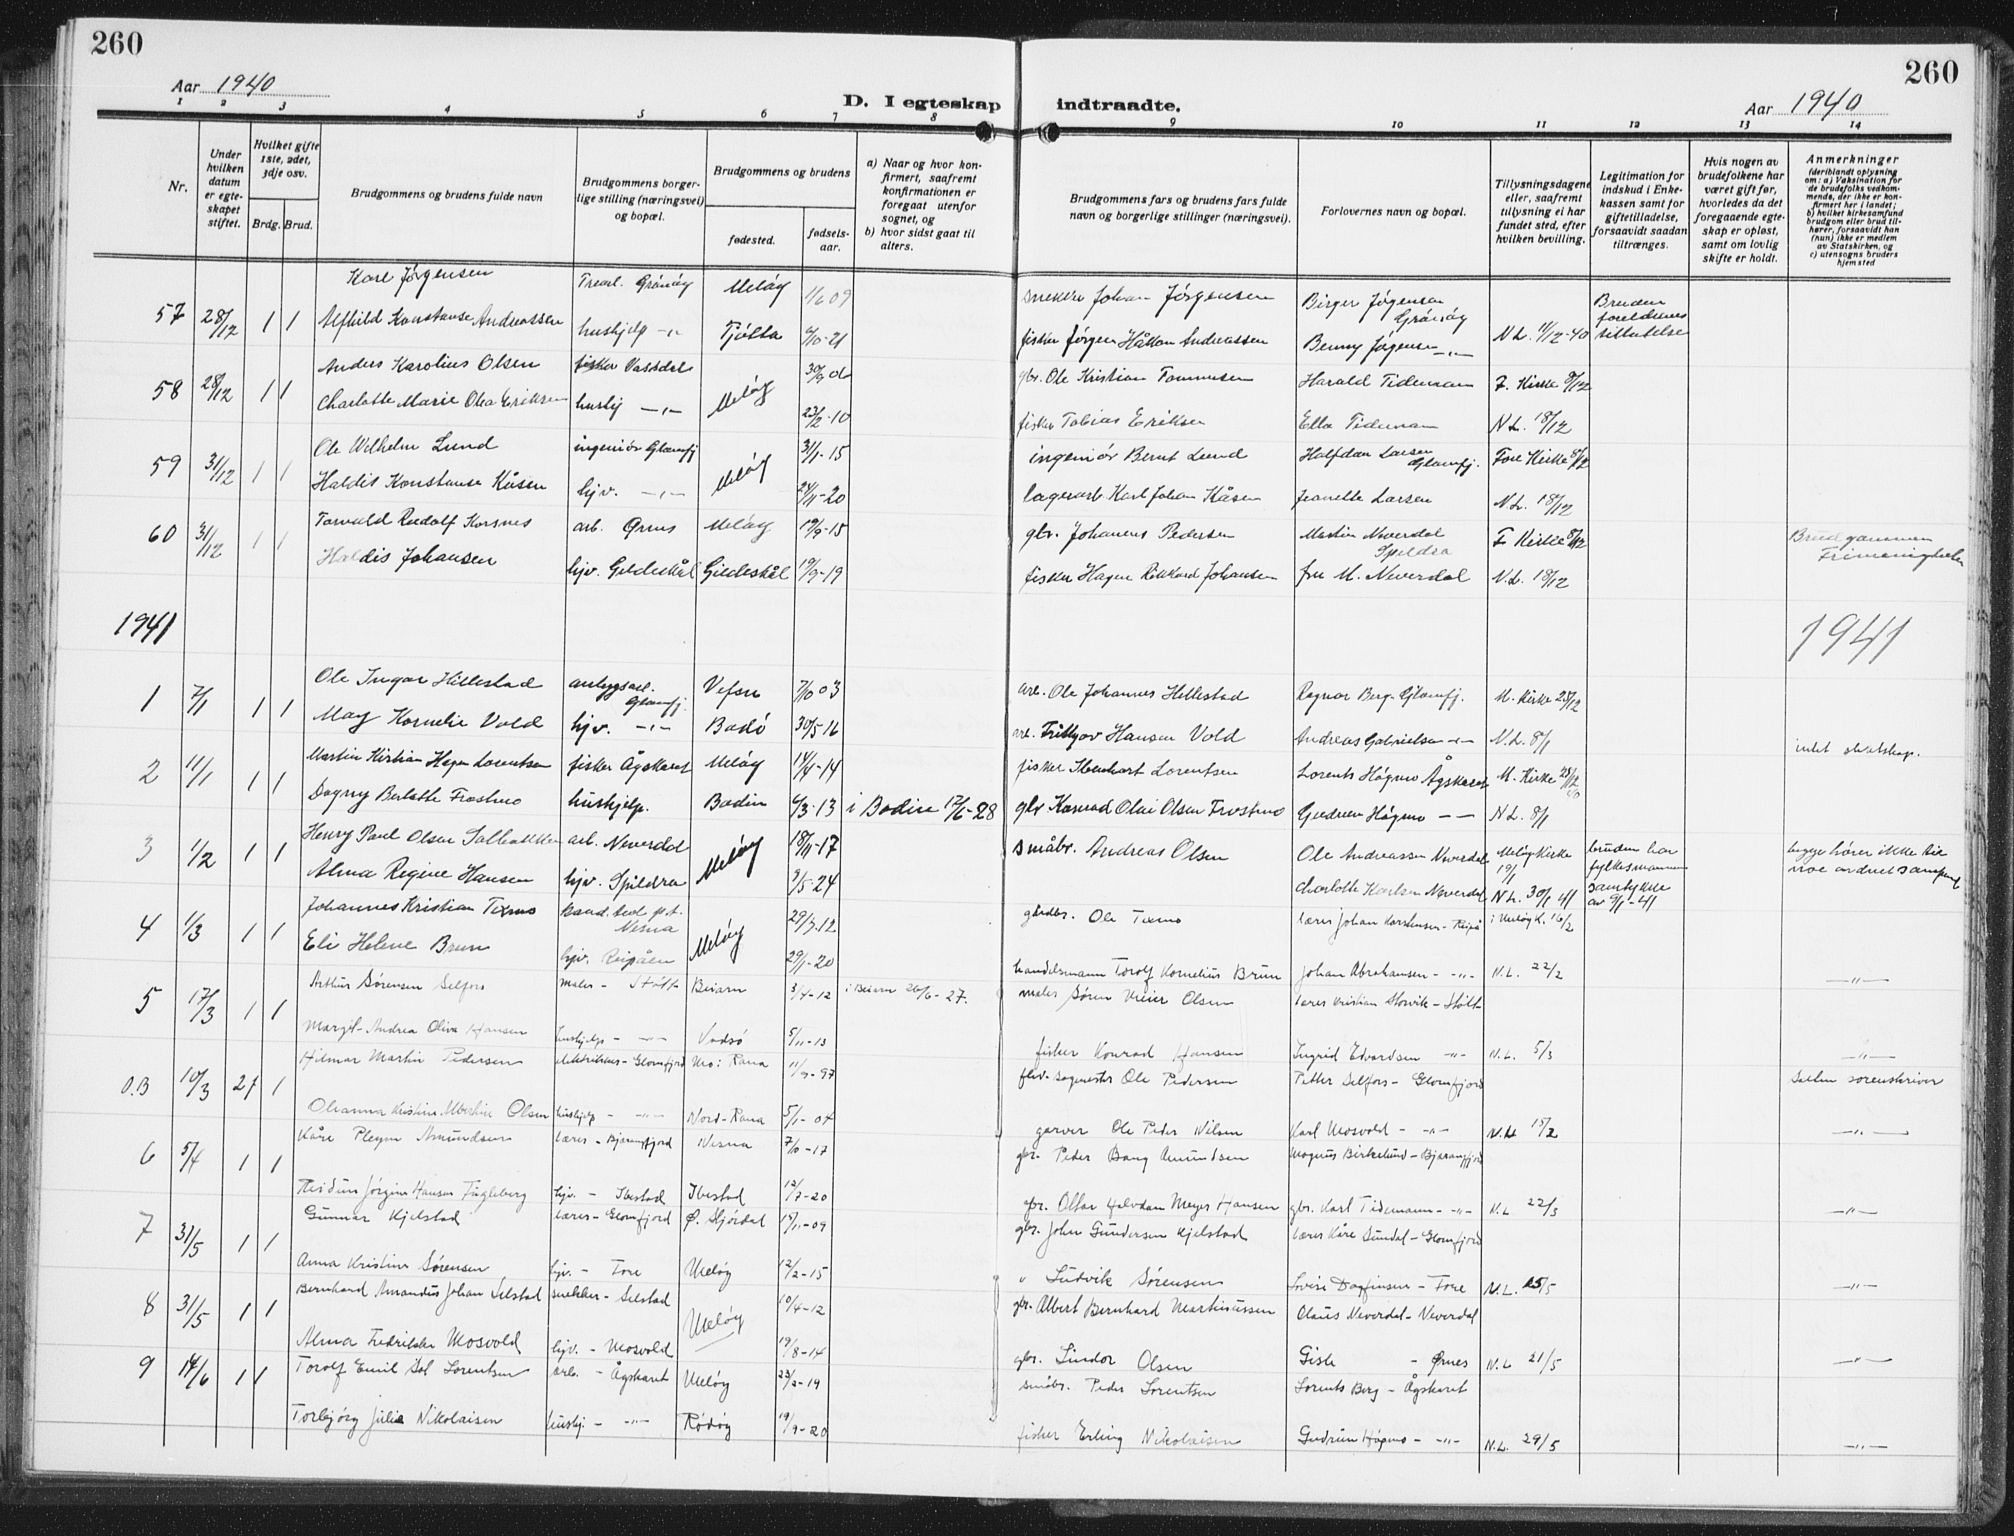 260
260
Aar 1940
D. I egteskap indtraadte.
Aar 1940
1 2 3 4 5 6 7 8 9 10 11 12 13 14
Nr.
Under hvilken datum er egteskapet stiftet.
Hvilket gifte 1ste, 2det, 3dje osv.
Brdg. Brud.
Brudgommens og brudens fulde navn
Brudgommens borgerlige stilling (næringsvei) og bopæl.
Brudgommens og brudens
fødested.
fødselsaar.
a) Naar og hvor konfirmert, saafremt konfirmationen er foregaat utenfor sognet, og
b) hvor sidst gaat til alters.
Brudgommens fars og brudens fars fulde navn og borgerlige stillinger (næringsvei).
Forlovernes navn og bopæl.
Tillysningsdagene eller, saafremt tillysning ei har fundet sted, efter hvilken bevilling.
Legitimation for indskud i Enkekassen samt for giftetilladelse, forsaavidt saadan tiltrænges.
Hvis nogen av brudefolkene har været gift før, hvorledes da det foregaaende egteskap er opløst, samt om lovlig skifte er holdt.
Anmerkninger (deriblandt oplysning om: a) Vaksination for de brudefolks vedkommende, der ikke er konfirmert her i landet; b) hvilket kirkesamfund brudgom eller brud tilhører, forsaavidt han (hun) ikke er medlem av Statskirken, og c) utensogns bruders hjemsted
Kare Jørgensen Grånøy Meløy 1/6 09 snekker Johan Jørgensen Birger Jørgensen Grånøy Bruden
57 28/12 1 1 Alfhild Konstanse Andreassen hushjelp -"- Tjøtta 4/10-21 fisker Jørgen Håkon Andreassen Benny Jørgensen -"- N.L. 11/12-40 foreldrenes tillatelse
Anders Karolius Olsen fisker Vassdal 30/9 06 gbr. Ole Kristian Tommesen Harald Tideman F. Kirke 8/12
58 28/12 1 1 Charlotte Marie Olea Eriksen hushj -"- Meløy 23/2-10 fisker Tobias Eriksen Ella Tideman N.L. 18/12
Ole Wilhelm Lund ingeniør Glomfj 31/1-15 ingeniør Bernt Lund Halfdan Larsen Glomfj. Fore Kirke 8/12
59 31/12 1 1 Haldis Konstanse Kåsen hjv. -"- Meløy 24/11-20 lagerarb Karl Johan Kåsen Jeanette Larsen N.L. 18/12
60 31/12 1 1 Torvald Rudolf Korsnes arb. Ørnes Meløy 19/9-15 gbr. Johannes Pedersen Martin Neverdal Spildra F Kirke 8/12 Brudgommen
Haldis Johansen hjv. Gildeskål Gildeskål 19/9-19 fisker Hagen Rikkard Johansen fru M. Neverdal N.L. 18/12
1941
1941
Ole Ingvar Hillestad anleggsarb. Glomfj. Vefsn 7/10 03 arb. Ole Johannes Hillestad Ragnar Berg Glomfj. M. Kirke 25/12
1 7/1 1 1 May Kornelie Vold hjv. -"- Bodø 30/5 16 arb. Frithjov Hansen Vold Andreas Gabrielsen -"- N.L. 8/1
Martin Kristian Hagen Lorentsen fisker Ågskaret Meløy 14/4-14 fisker Lorentsen Lorents Høgmo Ågskaret M. Kirke intet slektskap.
2 11/1 1 1 Dagny Berlotte Frostmo hushjelp. Bodin 4/3-13 i Bodin 17/6-28 gbr Konrad Olai Olsen Frostmo Gudrun Høgmo -- N.L. 8/1
3 1/2 1 1 Henry Paul Olsen arb. Neverdal 18/11-17 småbr. Andreas Olsen Ole Andreassen Neverdal Meløy Kirke 19/1 bruden har fylkesmannen
Alma Regine Hansen hjv. Spildra Meløy 9/5-24 Charlotte Karlsen Neverdal N.L. 30/1 41 samtykke av 9/1-41
Johannes Kristian Texmo kand. teol p.t. Nesna 29/3.12 gårdbr. Ole Texmo lærer Johan Karstensen - Reipå i Meløy K. 16/2
4 1/3 1 1 Eli Helene Brun hjv. Reipåen Meløy 29/1-20 handelsmann Torolf Kornelius Brun Johan Abrahamsen -"- N.L. 22/2 -"-
5 17/3 1 1 Arthur Sørensen Selfors maler - Støtt Beiarn 3/4-12 i Beiarn 26/6-27. maler Søren Meier Olsen lærer Kristian Storvik - Støtt
Margit Andrea Oliva Hansen hushjelp -"- Vadsø 5/11-13 fisker Konrad Hansen Ingrid Edvardsen -"- N.L. 5/3 -"-
Hilmar Martin Pedersen elektriker - Glomfjord Mo: Rana 11/9-97 Ole Pedersen Petter Selfors - Glomfjord sorenskriver
O.B 10/3 2 1 Oleanna Kristine Albertine Olsen hushjelp -"- Nord-Rana 5/1-04 garver Ole Peder Nilsen Karl Mosvold -"- N.L. 15/2 -"-
6 5/4 1 1 Kåre Pleym Amundsen lærer - Bjærangfjord Nesna 7/10-17 gbr. Peder Bang Amundsen Magnus Birkelund - Bjærangfjord
Reidun Jørgine Hansen Fugleberg hjv. - Ibestad Ibestad 12/7-20 gbr. Ottar Halvdan Meyer Hansen gbr. Karl Tidemann -"- N.L. 22/3 -"-
7 31/5 1 1 Gunnar Kjelstad lærer - Glomfjord Ø. Stjørdal 15/11-09 gbr. John Gundersen Kjelstad lærer Kåre Sundal - Glomfjord
Anna Kristine Sørensen hjv. - Fore Meløy 12/2-15 " Ludvik Sørensen Dagfinsen - Fore N.L. 25/5 -"-
8 31/5 1 1 Bernhard Amandus Johan Selstad snekker - Selstad 10/4-12 gbr. Albert Bernhard Martinussen Claus Neverdal - Neverdal
Alma Fredrikke Mosvold hjv. - Mosvold Meløy 19/8-14 gbr. Sindor Olsen Giske - Ørnes N.L. 21/5 -"-
9 14/6 1 1 Torolf Emil Lorentsen arb. - Ågskaret Meløy 23/2-19 småbr. Peder Lorentsen Lorents Berg - Ågskaret
Torbjørg Julie Nikolaisen hushj. -"- Rødøy 19/9-20 fisker Erling Nikolaisen Gudrun Høgmo -"- N.L. 29/5 -"-